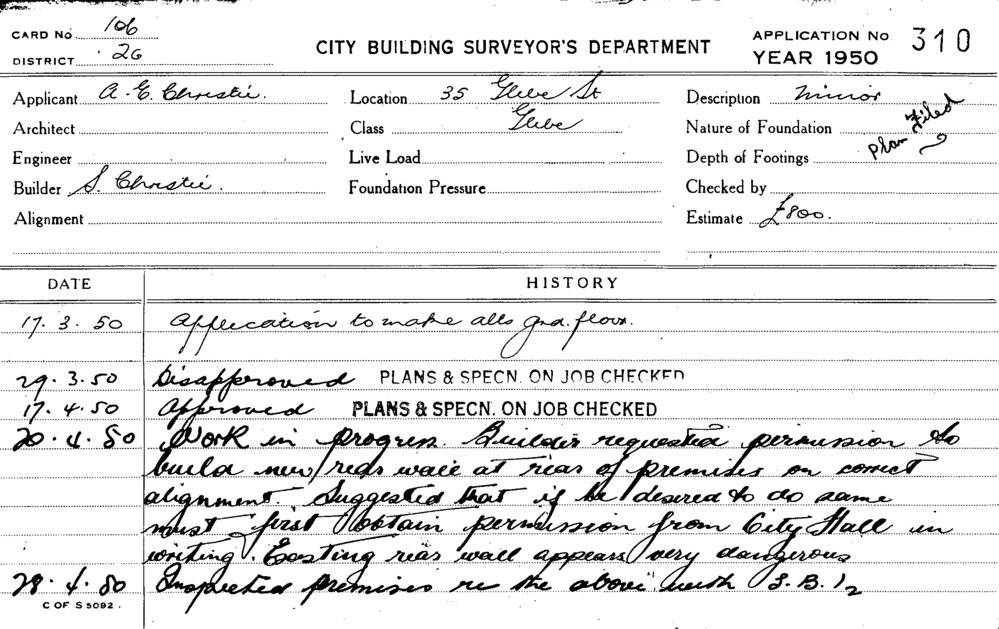 CARD No 106
DISTRICT 26
CITY BUILDING SURVEYOR'S DEPARTMENT
APPLICATION No 310
YEAR 1950
Applicant A. E. Christie.
Location 35 Glebe St
Description Minor
Architect
Class Glebe
Nature of Foundation
Plan Filed
Engineer
Live Load
Depth of Footings
Builder S. Christie.
Foundation Pressure
Checked by
Alignment
Estimate £800.
DATE HISTORY
17. 3. 50 Application to make alts gnd. floor.
29. 3. 50 Disapproved PLANS & SPECN. ON JOB CHECKED
17. 4. 50 Approved PLANS & SPECN. ON JOB CHECKED
20. 4. 50 Work in progress. Builder requested permission to
build new rear wall at rear of premises on correct
alignment. Suggested that if he desired to do same
must first obtain permission from City Hall in
writing. Existing rear wall appears very dangerous
28. 4. 50 Inspected premises re the above with
C OF S 5092.